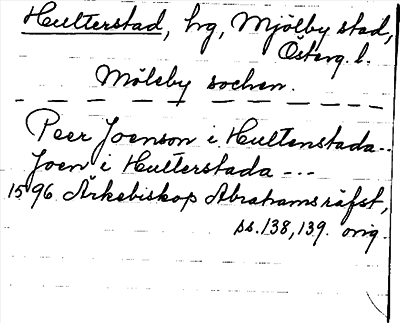 Hulterstad, hg, Mjölby stad,
Österg. l.
Mölsby sochen.
Peer Joenson i Hultenstada --
Joen i Hulterstada ---
1596 Ärkebiskop Abrahams räfst,
ss. 138, 139. orig.